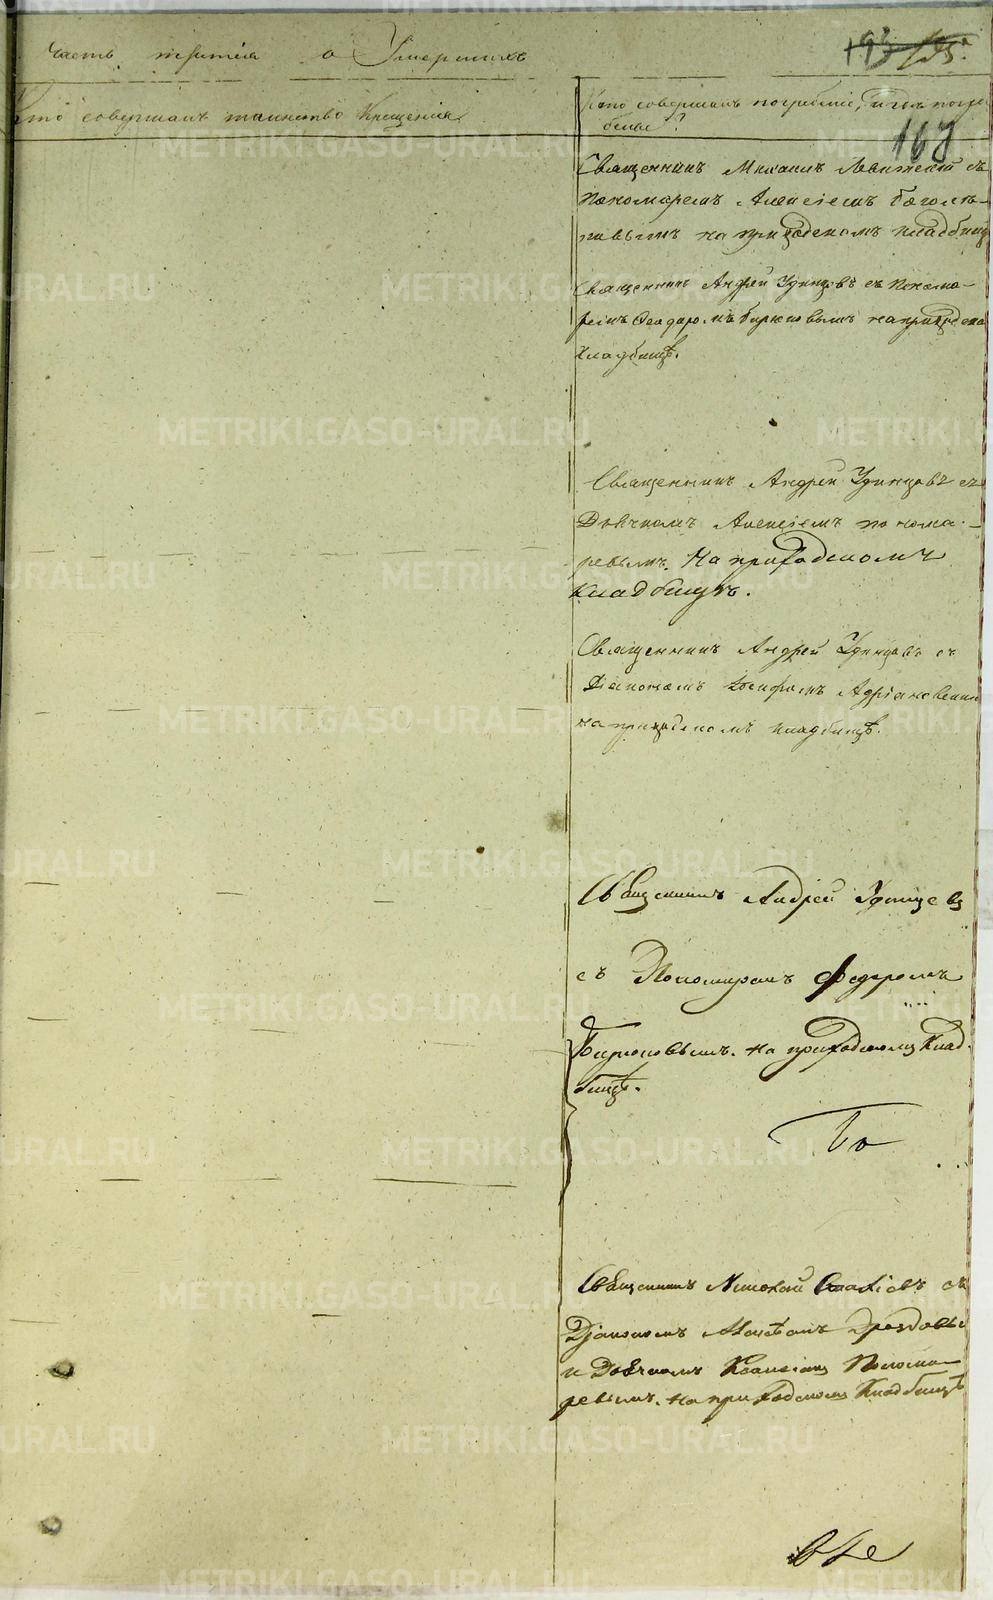 Часть третія о Умершихъ
193 135.
Кто совершалъ таинство Крещенія
Кто совершалъ погребеніе, и гдѣ погре
бены?
167
Священникъ Михаилъ с
Пономаремъ Алексіемъ Боголѣ-
повымъ на приходскомъ кладбищѣ
Священникъ Андрей Удинцовъ съ Понома-
ремъ Феодоромъ Бирюковымъ на приходском
кладбищѣ.
Священникъ Андрей Удинцовъ съ
Дьячкомъ Алексіемъ Понома-
ревымъ. На приходскомъ
кладбищѣ.
Священникъ Андрей Удинцовъ съ
Діакономъ Іосифомъ Адріановскимъ
на приходскомъ кладбищѣ.
Священникъ Андрей Удинцевъ
съ Пономаремъ Федоромъ
Бирюковымъ. На приходскомъ Клад-
бищѣ.
Священникъ Николай съ
Діакономъ Дроздовы
и Дьячкомъ Понома-
ревымъ. На приходскомъ Кладбищѣ
METRIKI.GASO-URAL.RU